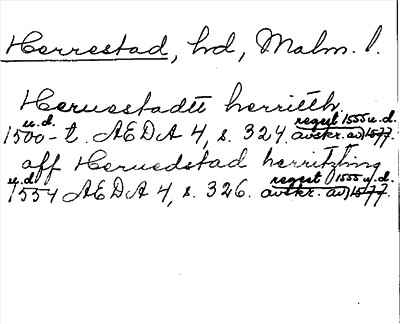 Herrestad, hd, Malm. l.
Heruestadtt herritth
u. d. regest 1555 u. d.
1500-t. AEDA 4, s. 324. avskr. av 1577.
aff Heruedstad herritzting
u. d. regest 1555 u. d.
1554 AEDA 4, s. 326. avskr. av 1577.